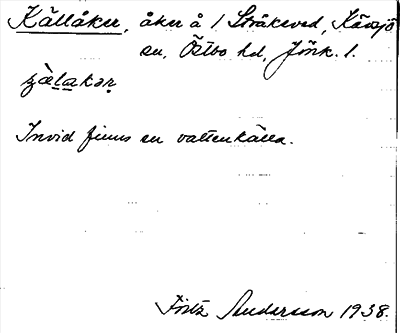 Källåker, åker å 1 Stråkeved, Kävsjö
sn, Östbo hd, Jönk. l.
Invid finns en vattenkälla.
Fritz Andersson 1938.